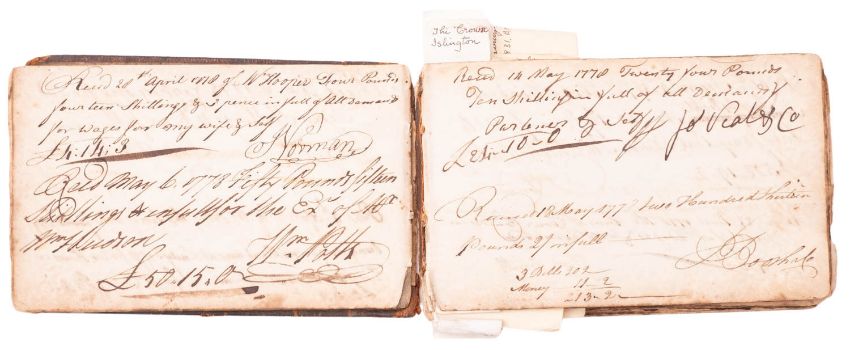 Recd 28th April 1778 of Mr Hooper Four Pounds
fourteen Shillings & 3 pence in full of All Demands
for Wages for my wife & Self
£4:14:3 Norman
Recd May 6 1778 Fifty Pounds fifteen
Shillings in full for the Exrs of
Wm Hudson
Wm Polk
£50.15.0
The Crown
Islington
Recd 14 May 1778 Twenty four Pounds
Ten Shillings in full of all Demands
Partener & Self Jo Veal & Co
£24-10-0
Received 18 May 177 two Hundred thirteen
pounds 2/ in full
3 Bills 202
Money 11-2
213-2